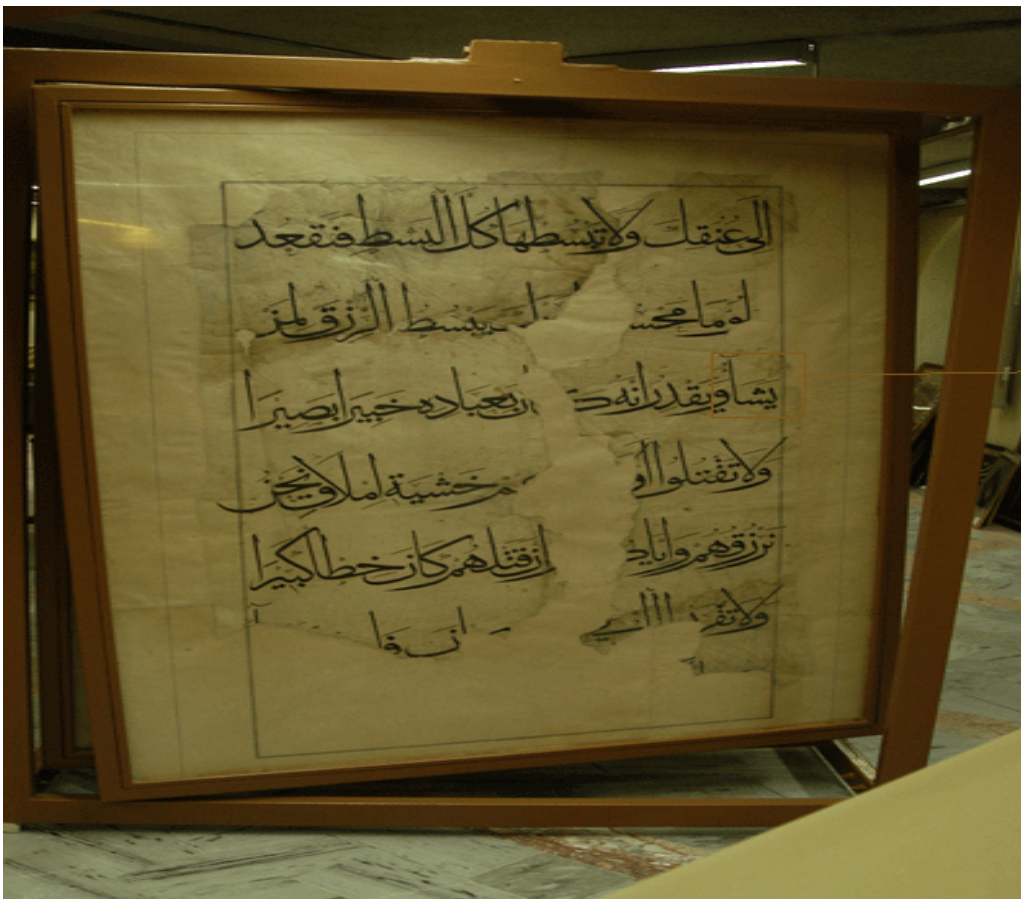 الى عنقك ولا تبسطها كل البسط فتقعد
لوما محسـ يبسط الرزق لمن
يشا ويقدر انه كـ ـان بعباده خبيرا بصيرا
ولا تقتلوا او خشية املاق نحن
نرزقهم وايا ان قتلهم كان خطا كبيرا
ولا